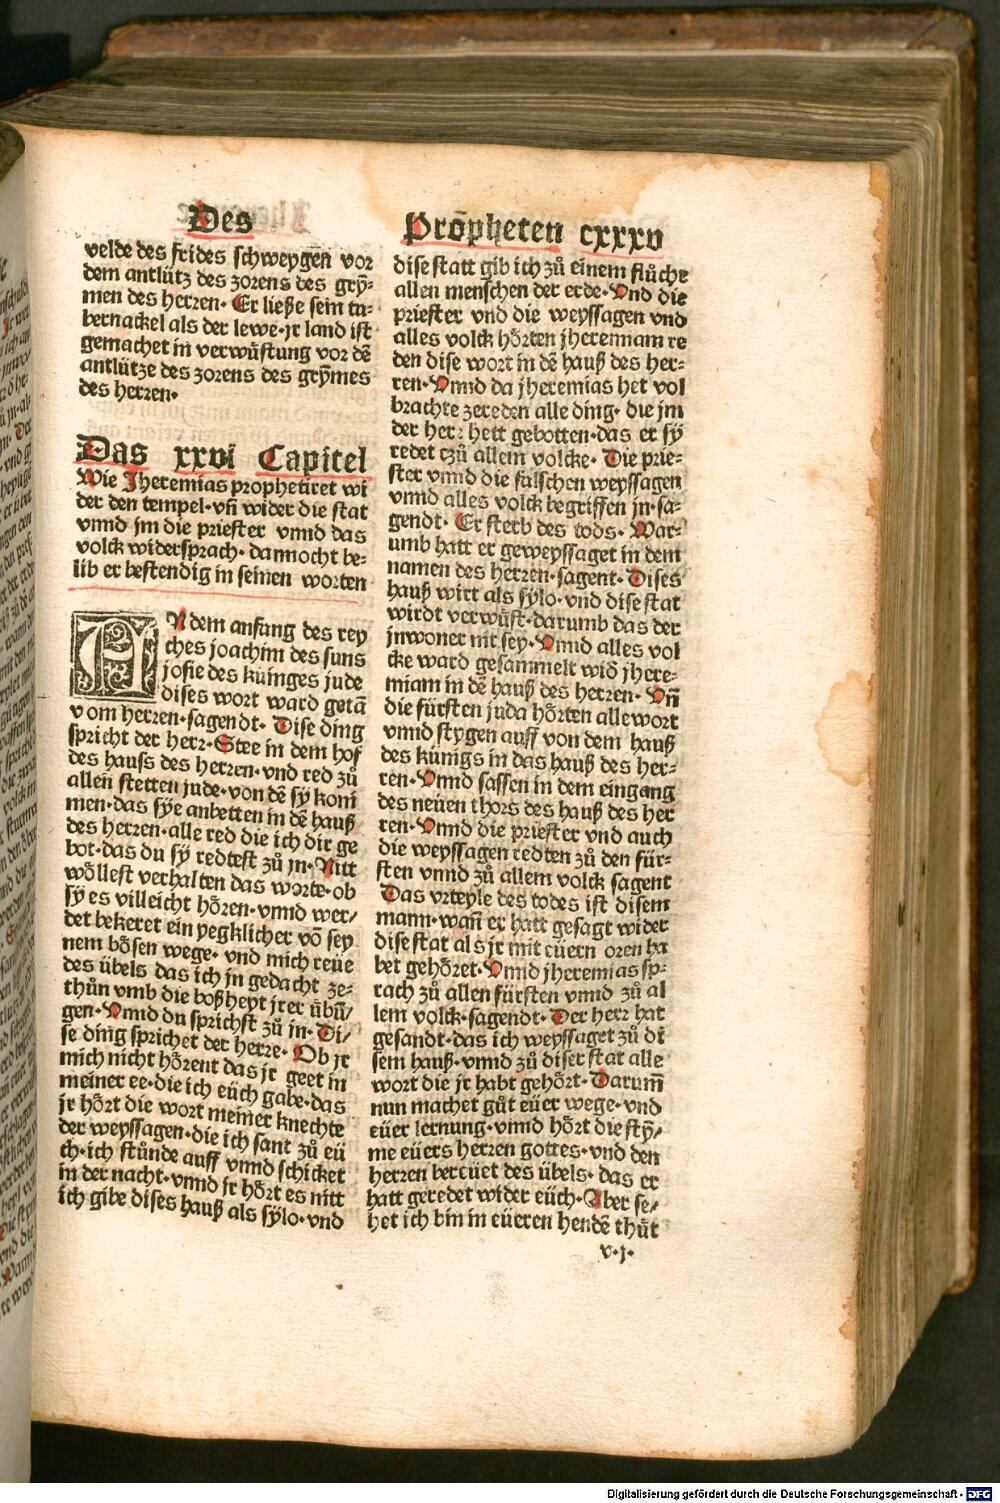 Des
velde des frides schweygeñ vor
dem antlütz des zorens des gry̅=
men des herren. Er ließe sein ta=
bernackel als der lewe.jr land ist
gemachet in verwüstung vor dē
antlütze des zorens des gry̅mes
des herren.
Das xxvi Capitel
Wie Jheremias prophetiret wi
der den tempel.vn̄ wider die stat
vnnd jm die priester vnnd das
volck widersprach.dannocht be=
lib er bestendig in seinen worten
AN dem anfang des rey
ches joachim des suns
josie des küniges jude
dises wort ward getā
vom herren.sagendt. Dise ding
spricht der herr.Stee in dem hof
des hauss des herren.vnd red zů
allen stetten jude.von dē sy kom
men.das sye anbetten in dē hauß
des herren.alle red die ich dir ge
bot.das du sy redtest zů jn.Nitt
wöllest verhalten das worte.ob
sy es villeicht hören.vnnd wer/
det bekeret ein yegklicher vō sey
nem bösen wege. vnd mich reüe
des übels das ich in gedacht ze=
thůn vmb die boßheyt jrer übū/
gen.Vnnd du sprichst zů jn.Di/
se ding sprichet der herre. Ob jr
mich nicht hörent das jr geet in
meiner ee.die ich eüch gabe.das
jr hört die wort meiner knechte
der weyssagen.die ich sant zů eü
ch.ich stůnde auff vnnd schicket
in der nacht.vnnd jr hört es nitt
ich gibe dises hauß als sylo.vnd
Prōpheten cxxxv
dise statt gib ich zů einem flůche
allen menschen der erde.Vnd die
priester vnd die weyssagen vnd
alles volck hörten jheremiam re
den dise wort in dē hauß des her=
ren.Vnnd da jheremias het vol
brachte zereden alle ding. die jm
der herr hett gebotten.das er sy
redet tzů allem volcke. Die prie=
ster vnnd die falschen weyssagen
vnnd alles volck begriffen jn.sa=
gendt. Er sterb des tods. War=
umb hatt er geweyssaget in dem
namen des herren.sagent.Dises
hauß wirt als sylo.vnd dise stat
wirdt verwüst.darumb das der
jnwoner nit sey.Vnnd alles vol
cke ward gesammelt wid̄ jhere=
miam in dē hauß des herren. Vn̄
die fürsten juda hörten alle wort
vnnd stygen auff von dem hauß
des künigs in das hauß des her=
ren.Vnnd sassen in dem eingang
des neuen thors des hauß des her
ren.Vnnd die priester vnd auch
die weyssagen redten zů den für=
sten vnnd zů allem volck sagent
Das vrteyle des todes ist disem
mann.wan̄ er hatt gesagt wider
dise stat als jr mit eüern oren ha
bet gehöret.Vnnd jheremias sp=
rach zů allen fürsten vnnd zů al
lem volck.sagendt.Der herr hat
gesandt.das ich weyssaget zů di
sem hauß.vnnd zů diser stat alle
wort die jr habt gehört.Darum̄
nun machet gůt eüer wege.vnd
eüer lernung.vnnd hört die sty̅/
me eüers herren gottes.vnd den
herren bereüet des übels. das er
hatt geredet wider eüch.Aber se/
het ich bin in eüeren hendē thůt
v.j.
Digitalisierung gefördert durch die Deutsche Forschungsgemeinschaft - DFG